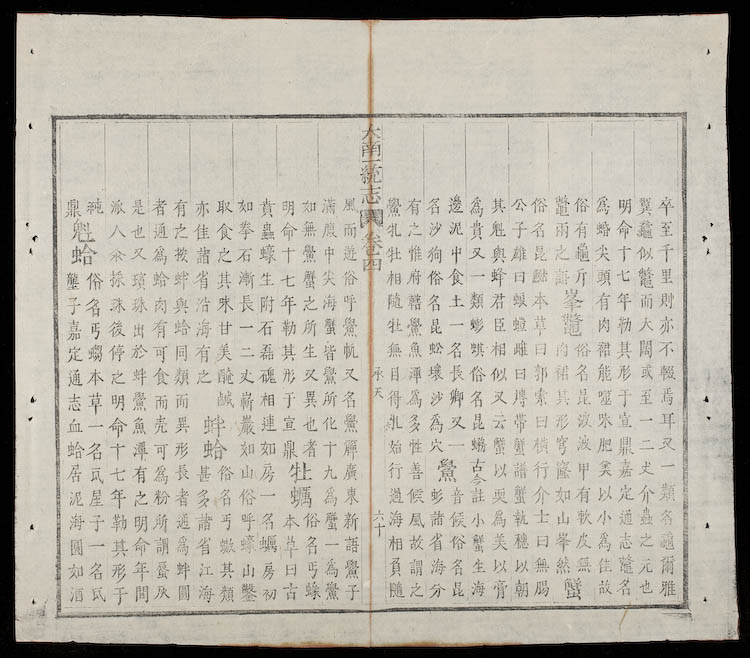 卒至千里則亦不輟焉耳又一類名龜爾雅
龜似鼈而大闊或至一二丈介蟲之元也
明命十七年勒其形于宣鼎嘉定通志鼈名
為尖頭有肉裙能噬朱肥美以小為佳故
俗有龜斤
鼈兩之語
峯鼈
俗名昆波波甲有軟皮無
肉裙其形穹隆如山峯然
蟹
俗名昆本草曰郭索曰橫行介士曰無腸
公子雄曰蜋螘雌曰博帶蟹譜蟹執穗以朝
其魁與蜂君臣相似又云蟹以為美以膏
為貴又一類蟛蜞俗名昆蟧古今註小蟹生海
邊泥中食土一名長卿又一
名沙狗俗名昆蚣壤沙為穴
鱟
音候俗名昆
蟛諸省海分
有之惟府轄鱟魚潭為多性善候風故謂之
鱟牝牡相隨牡無目得牝始行過海相負隨
大南一統志 卷四 承天 六十
風而遊俗呼鱟帆又名鱟簰廣東新語鱟子
滿腹中尖海蟹皆鱟所化十九為蟹一為鱟
如無鱟蟹之所生又異也者
明命十七年勒其形于宣鼎
牡蠣
俗名丐蠔
本草曰古
賁蟲蠔生附石磊磈相連如房一名蠣房初
如拳石漸長一二丈嶄巖如山俗呼蠔山鑿
取食之其味甘美醃鹹
亦佳諸省沿海有之
蚌蛤
俗名丐其類
甚多諸省江海
有之按蚌與蛤同類而異形長者通為蚌圓
者通為蛤肉有可食而壳可為粉所謂蜃灰
是也又璸珠出於蚌鱟魚潭有之明命年間
派人汆採珠後停之明命十七年勒其形于
純
鼎
魁蛤
俗名丐蠣本草一名瓦屋子一名瓦
壟子嘉定通志血蛤居泥海圓如酒